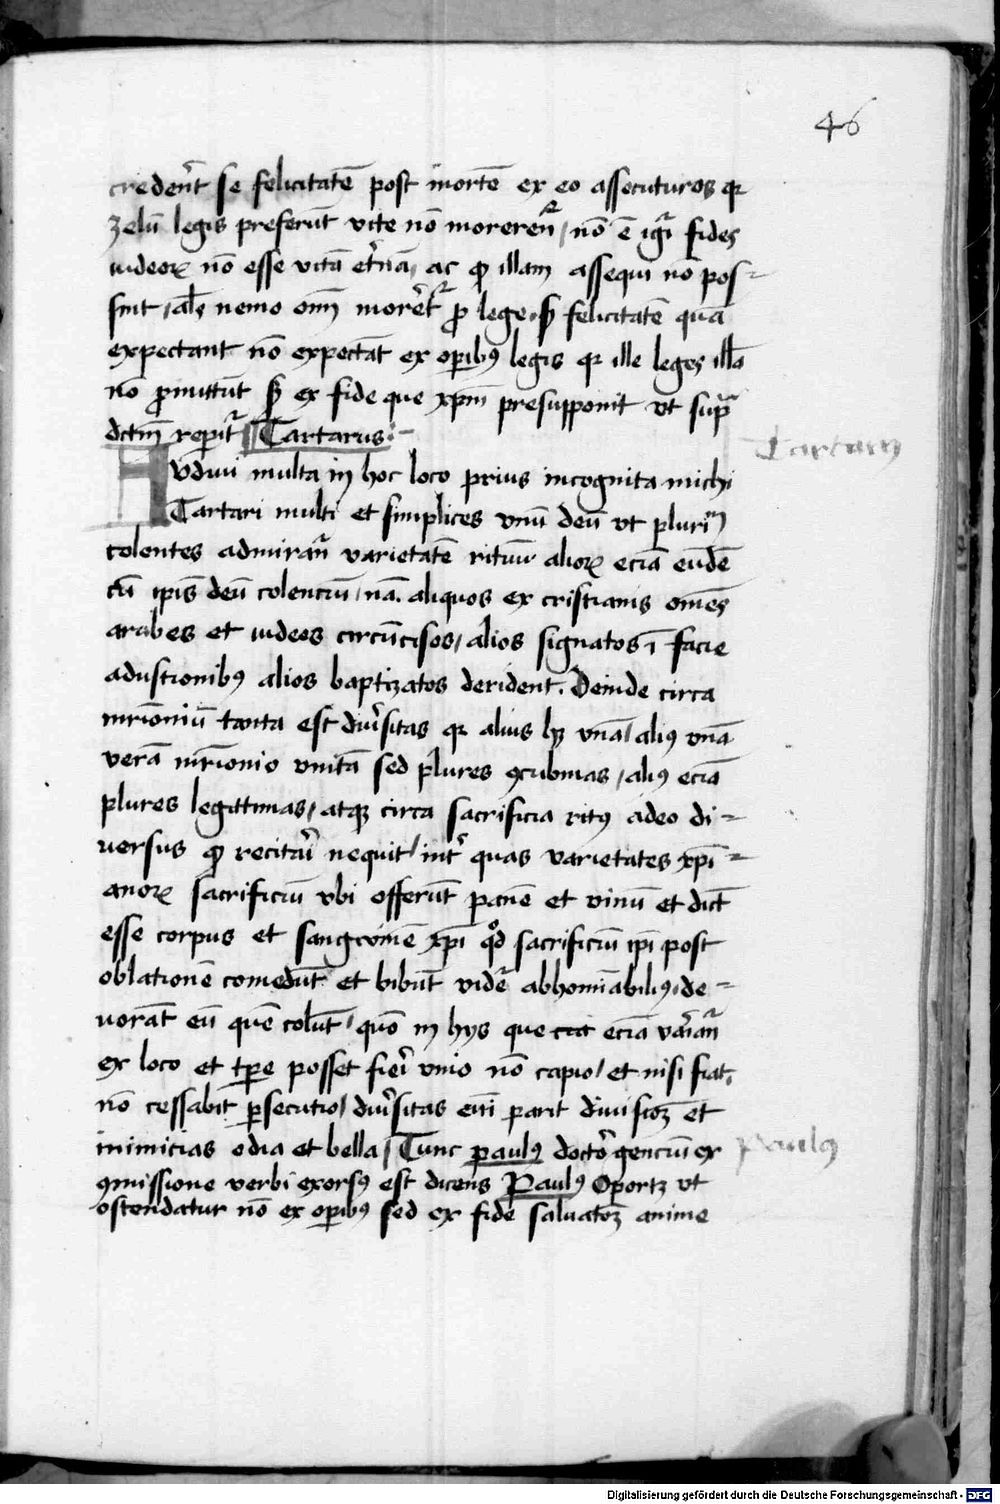 46
credēt se felicitatē post mortē ex eo assecuturos qr
zelū legis preferūt vite nō morerenť / nō ē igr̄ fides
iudeoꝝ nō esse vitā et̄nā, ac ꝙ illam assequi nō pos-
sint, als nemo om̄ morēt̄ ꝓ lege, sꝫ felicitatē quā
expectant nō expectāt ex oꝑibꝰ legis qr ille leges illā
nō ꝓmittūt sꝫ ex fide que xpm̄ presupponit vt supᵃ
dctm̄ reperit᷑ Tartarus
Tartarus
Audiui multa in hoc loco prius incognita michi
Tartari multi et simplices vnū deū vt plurim̄
colentes admiranť varietatē rituū alioꝝ eciā eūdē
cū ipīs deū colenciū, nā. aliquos ex cristianis omēs
arabes et iudeos circūcisos, alios signatos ī facie
adustionibꝰ alios baptizatos derident. Deinde circa
mr̄imoniū tanta est diūsitas qr alius hꝫ vnā, aliꝰ vnā
verā mr̄imonio vnitā sed plures ꝯcubinas, aliꝰ eciā
plures legittimas, atqꝫ circa sacrificia ritꝰ adeo di-
uersus ꝙ recitari nequit, int̄ quas varietates xpī-
anoꝝ sacrificiū vbi offerūt panē et vinū et dicūt
esse corpus et sanguinē xpī qd̄ sacrificiū ipī post
oblationē comedūt et bibūt videt᷑ abhomīabiliꝰ, de-
uorāt eū quē colūt, quō in hys que eciā variant᷑
ex loco et tꝑe posset fieri vnio nō capio, et nisi fiat,
nō cessabit ꝑsecutio, diūsitas em̄ parit diuisioꝫ et
inimicias odia et bella, Tunc paulꝰ doctor genciū ex
Paulꝰ
ꝯmissione verbi exorsꝰ est dicens Paulꝰ Oportꝫ vt
ostendatur nō ex oꝑibꝰ sed ex fide saluatoꝫ anime
Digitalisierung gefördert durch die Deutsche Forschungsgemeinschaft - DFG